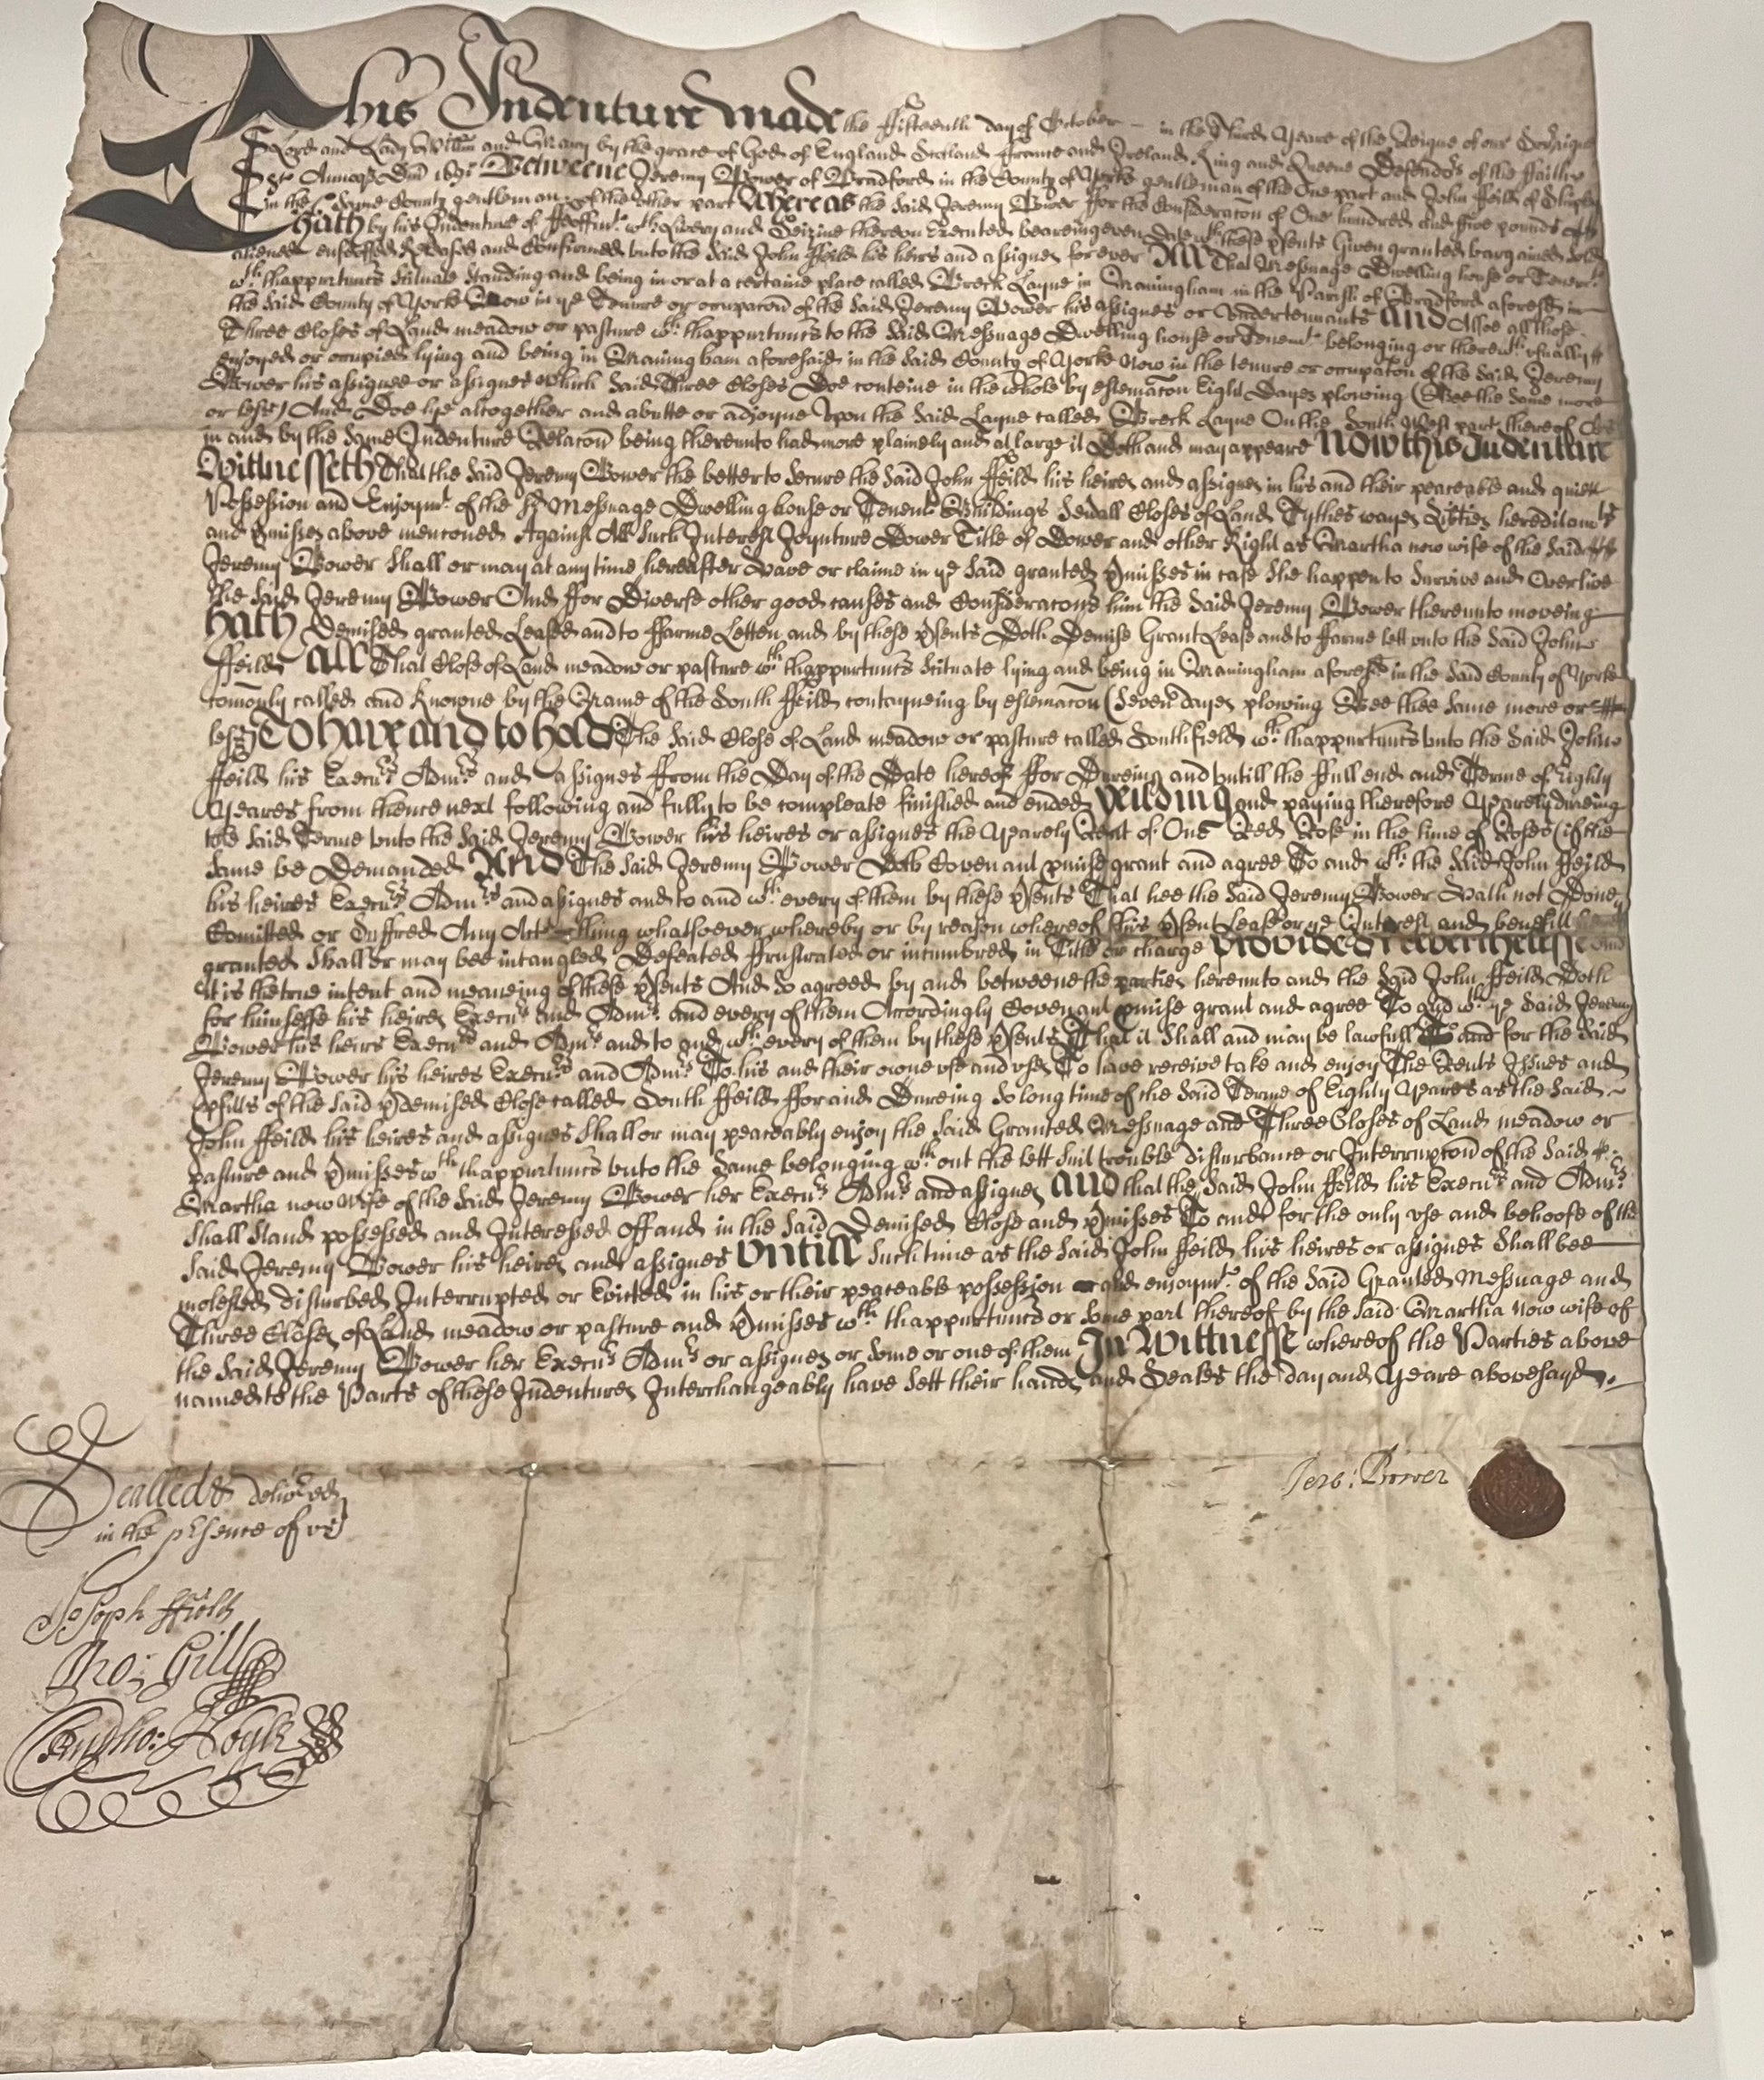 This Indenture made the ffifteenth day of October in the third Yeare of the Reigne of our Soveraigne
Lord and Lady William and Mary by the grace of God of England Scotland ffrance and Ireland King and Queene Defendrs of the ffaith
&c Annoq Dni 1691 Betweene Jeremy Bower of Bradford in the County of Yorke gentleman of the one part and John ffeild of Shipley
in the same County gentleman of the other part Whereas the said Jeremy Bower ffor the Consideracon of One hundred and five pounds
Hath by his Indenture of ffeoffmt wth Livery and Seizine thereon Executed beareing even date wth these psents Given granted bargained sold
aliened enfeoffed Released and Confirmed unto the said John ffeild his heirs and assignes for ever All That Messuage Dwelling house or Tenemt
wth thappurtnncs Scituate Standing and being in or at a certaine place called Wreck Layne in Maningham in the Parish of Bradford aforesd in
the said County of Yorke Now in ye Tenure or occupacon of the said Jeremy Bower his assignes or Undertennants And Alsoe all those
Three Closes of Land meadow or pasture wth thappurtnncs to the said Messuage Dwelling house or Tenemt belonging or therewth usually
enjoyed or occupied lying and being in Maningham aforesaid in the said County of Yorke Now in the tenure or occupacon of the said Jeremy
Bower his assignee or assignes which said Three Closes Doe conteine in the whole by estemacon Eight Dayes plowing (Bee the same more
or lesse) And Doe lye altogether and abutte or adjoyne Upon the said Layne called Wreck Layne On the South West part thereof As
in and by the same Indenture Relacon being thereunto had more plainely and at large it Doth and may appeare Now this Indenture
Wittnesseth That the said Jeremy Bower the better to secure the said John ffeild his heires and assignes in his and their peaceable and quiett
Possession and Enjoymt of the sd Messuage Dwelling house or Tenemt Buildings Sevall Closes of Land Tythes wayes Libties hereditamts
and pmisses above menconed Against All such Interest Joynture Dower Title of Dower and other Right as Martha now wife of the said
Jeremy Bower Shall or may at any time hereafter Have or claime in ye said granted pmisses in case she happen to Survive and Overlive
the said Jeremy Bower And ffor Diverse other good causes and Consideracons him the said Jeremy Bower thereunto moveing
Hath Demised granted Leased and to ffarme Letten and by these psents Doth Demise Grant Lease and to ffarme lett unto the said John
ffeild All That Close of Land meadow or pasture wth thappurtnncs Scituate lying and being in Maningham aforesd in the said County of Yorke
comonly called and knowne by the Name of the South ffeild contayneing by estemacon (Seven dayes plowing Bee thee same more or
lesse) To have and to hold The said Close of Land meadow or pasture called Southfield wth thappurtnncs unto the said John
ffeild his Execrs Admrs and assignes ffrom the Day of the Date hereof ffor Dureing and Untill the ffull end and Terme of Eighty
Yeares from thence next following and fully to be compleate finished and ended Yeilding and paying therefore Yearely dureing
the said Terme unto the said Jeremy Bower his heires or assignes the Yearely Rent of One Red Rose in the time of Roses (if the
same be Demanded And The said Jeremy Bower Doth Covenant pmise grant and agree To and wth the said John ffeild
his heires Execrs Admrs and assignes and to and wth every of them by these psents That hee the said Jeremy Bower Hath not Done
Comitted or Suffred Any Act thing whatsoever whereby or by reason whereof this psent Lease or ye Interest and benefitt
granted Shall or may bee intangled Defeated ffrustrated or incumbred in Title or charge Provided Neverthelesse And
it is the true intent and meaneing of these psents And So agreed by and betweene the parties hereunto and the said John ffeild Doth
for himselfe his heires Execrs and Admrs and every of them Accordingly Covenant pmise grant and agree To and wth ye said Jeremy
Bower his heirs Execrs and Admrs and to and wth every of them by these psents That it Shall and may be lawfull To and for the said
Jeremy Bower his heires Execrs and Admrs To his and their owne use and uses To have receive take and enjoy The Rents Issues and
pfitts of the said pdemised Close called South ffeild ffor and Dureing So long time of the said Terme of Eighty Yeares as the said
John ffeild his heires and assignes Shall or may peaceably enjoy the said Granted Messuage and Three Closes of Land meadow or
pasture and pmisses wth thappurtnncs unto the same belonging wthout the lett suit trouble disturbance or Interrupcon of the said
Martha now wife of the said Jeremy Bower her Execrs Admrs and assignes And that the said John ffeild his Execrs and Admrs
Shall Stand possessed and Interessed off and in the said Demised Close and pmisses To and for the only use and behoofe of the
said Jeremy Bower his heires and assignes Untill Such time as the said John ffeild his heires or assignes Shall bee
molested disturbed Interrupted or Evicted in his or their peaceable possession and enjoymt of the said Granted Messuage and
Three Closes of Land meadow or pasture and pmisses wth thappurtnncs or some part thereof by the said Martha now wife of
the said Jeremy Bower her Execrs Admrs or assignes or some or one of them In Wittnesse whereof the Parties above
named to the Parts of these Indentures Interchangeably have sett their hands and Seales the day and Yeare abovesayd
Jere: Bower
Sealled & delivered
in the psence of us
Joseph ffield
Tho: Gill